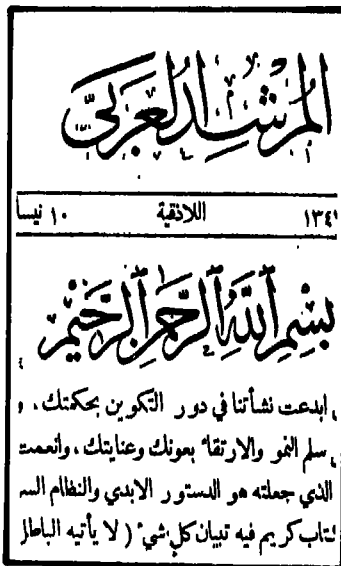 المرشد العربي
١٣٤ اللاذقية ١٠ نيسا
بسم الله الرحمن الرحيم
ابدعت نشأتنا في دور التكوين بحكمتك، و
سلم النمو والارتقاء بعونك وعنايتك، وانعمت
الذي جعلته هو الدستور الابدي والنظام السـ
كتاب كريم فيه تبيان كل شيء ( لا يأتيه الباطل